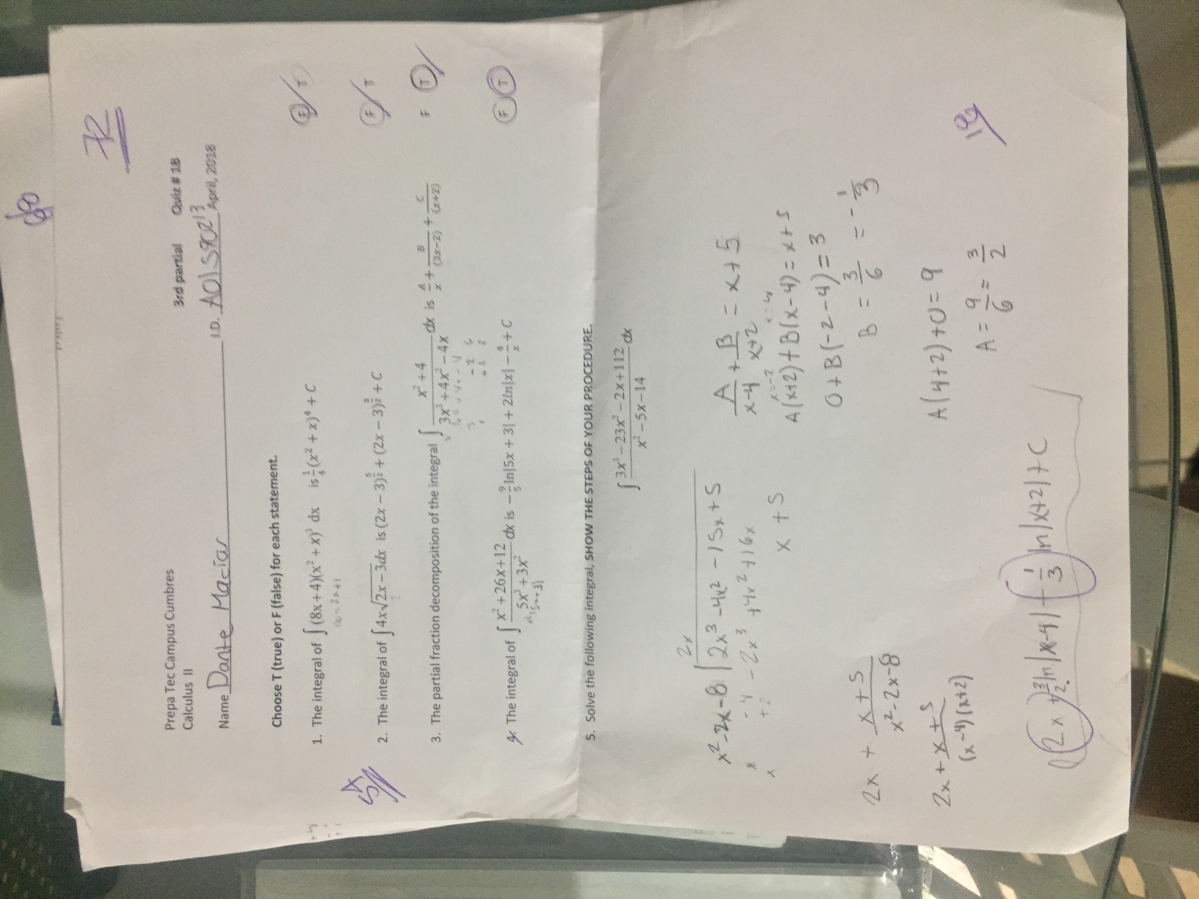 72
Prepa Tec Campus Cumbres 3rd partial Quiz # 18
Calculus II
Name Dante Macias I.D. A01590213 April, 2018
Choose T (true) or F (false) for each statement.
1. The integral of ∫(8x+4)(x²+x)³ dx is ¼(x² + x)⁴ + C F T
2. The integral of ∫4x√2x − 3dx is (2x − 3)^(5/2) + (2x − 3)^(3/2) + C F T
3. The partial fraction decomposition of the integral ∫ x²+4 / 3x³+4x²−4x dx is A/x + B/(3x−2) + C/(x+2) F T
4. The integral of ∫ x²+26x+12 / 5x³+3x² dx is −9/5 ln|5x + 3| + 2ln|x| − 4/x + C F T
5. Solve the following integral, SHOW THE STEPS OF YOUR PROCEDURE.
∫ 3x³−23x²−2x+112 / x²−5x−14 dx
2x
x²-2x-8 2x³-4x²-15x+5
-2x³+4x²+16x
x+5
2x + x+5 / x²-2x-8
2x + x+5 / (x-4)(x+2)
A/x-4 + B/x+2 = x+5
x=-2 x=4
A(x+2)+B(x-4)=x+5
0+B(-2-4)=3
B = 3/6 = -1/3
A(4+2)+0=9
A = 9/6 = 3/2
2x + 3/2 ln|x-4| + 1/3 ln|x+2|+C